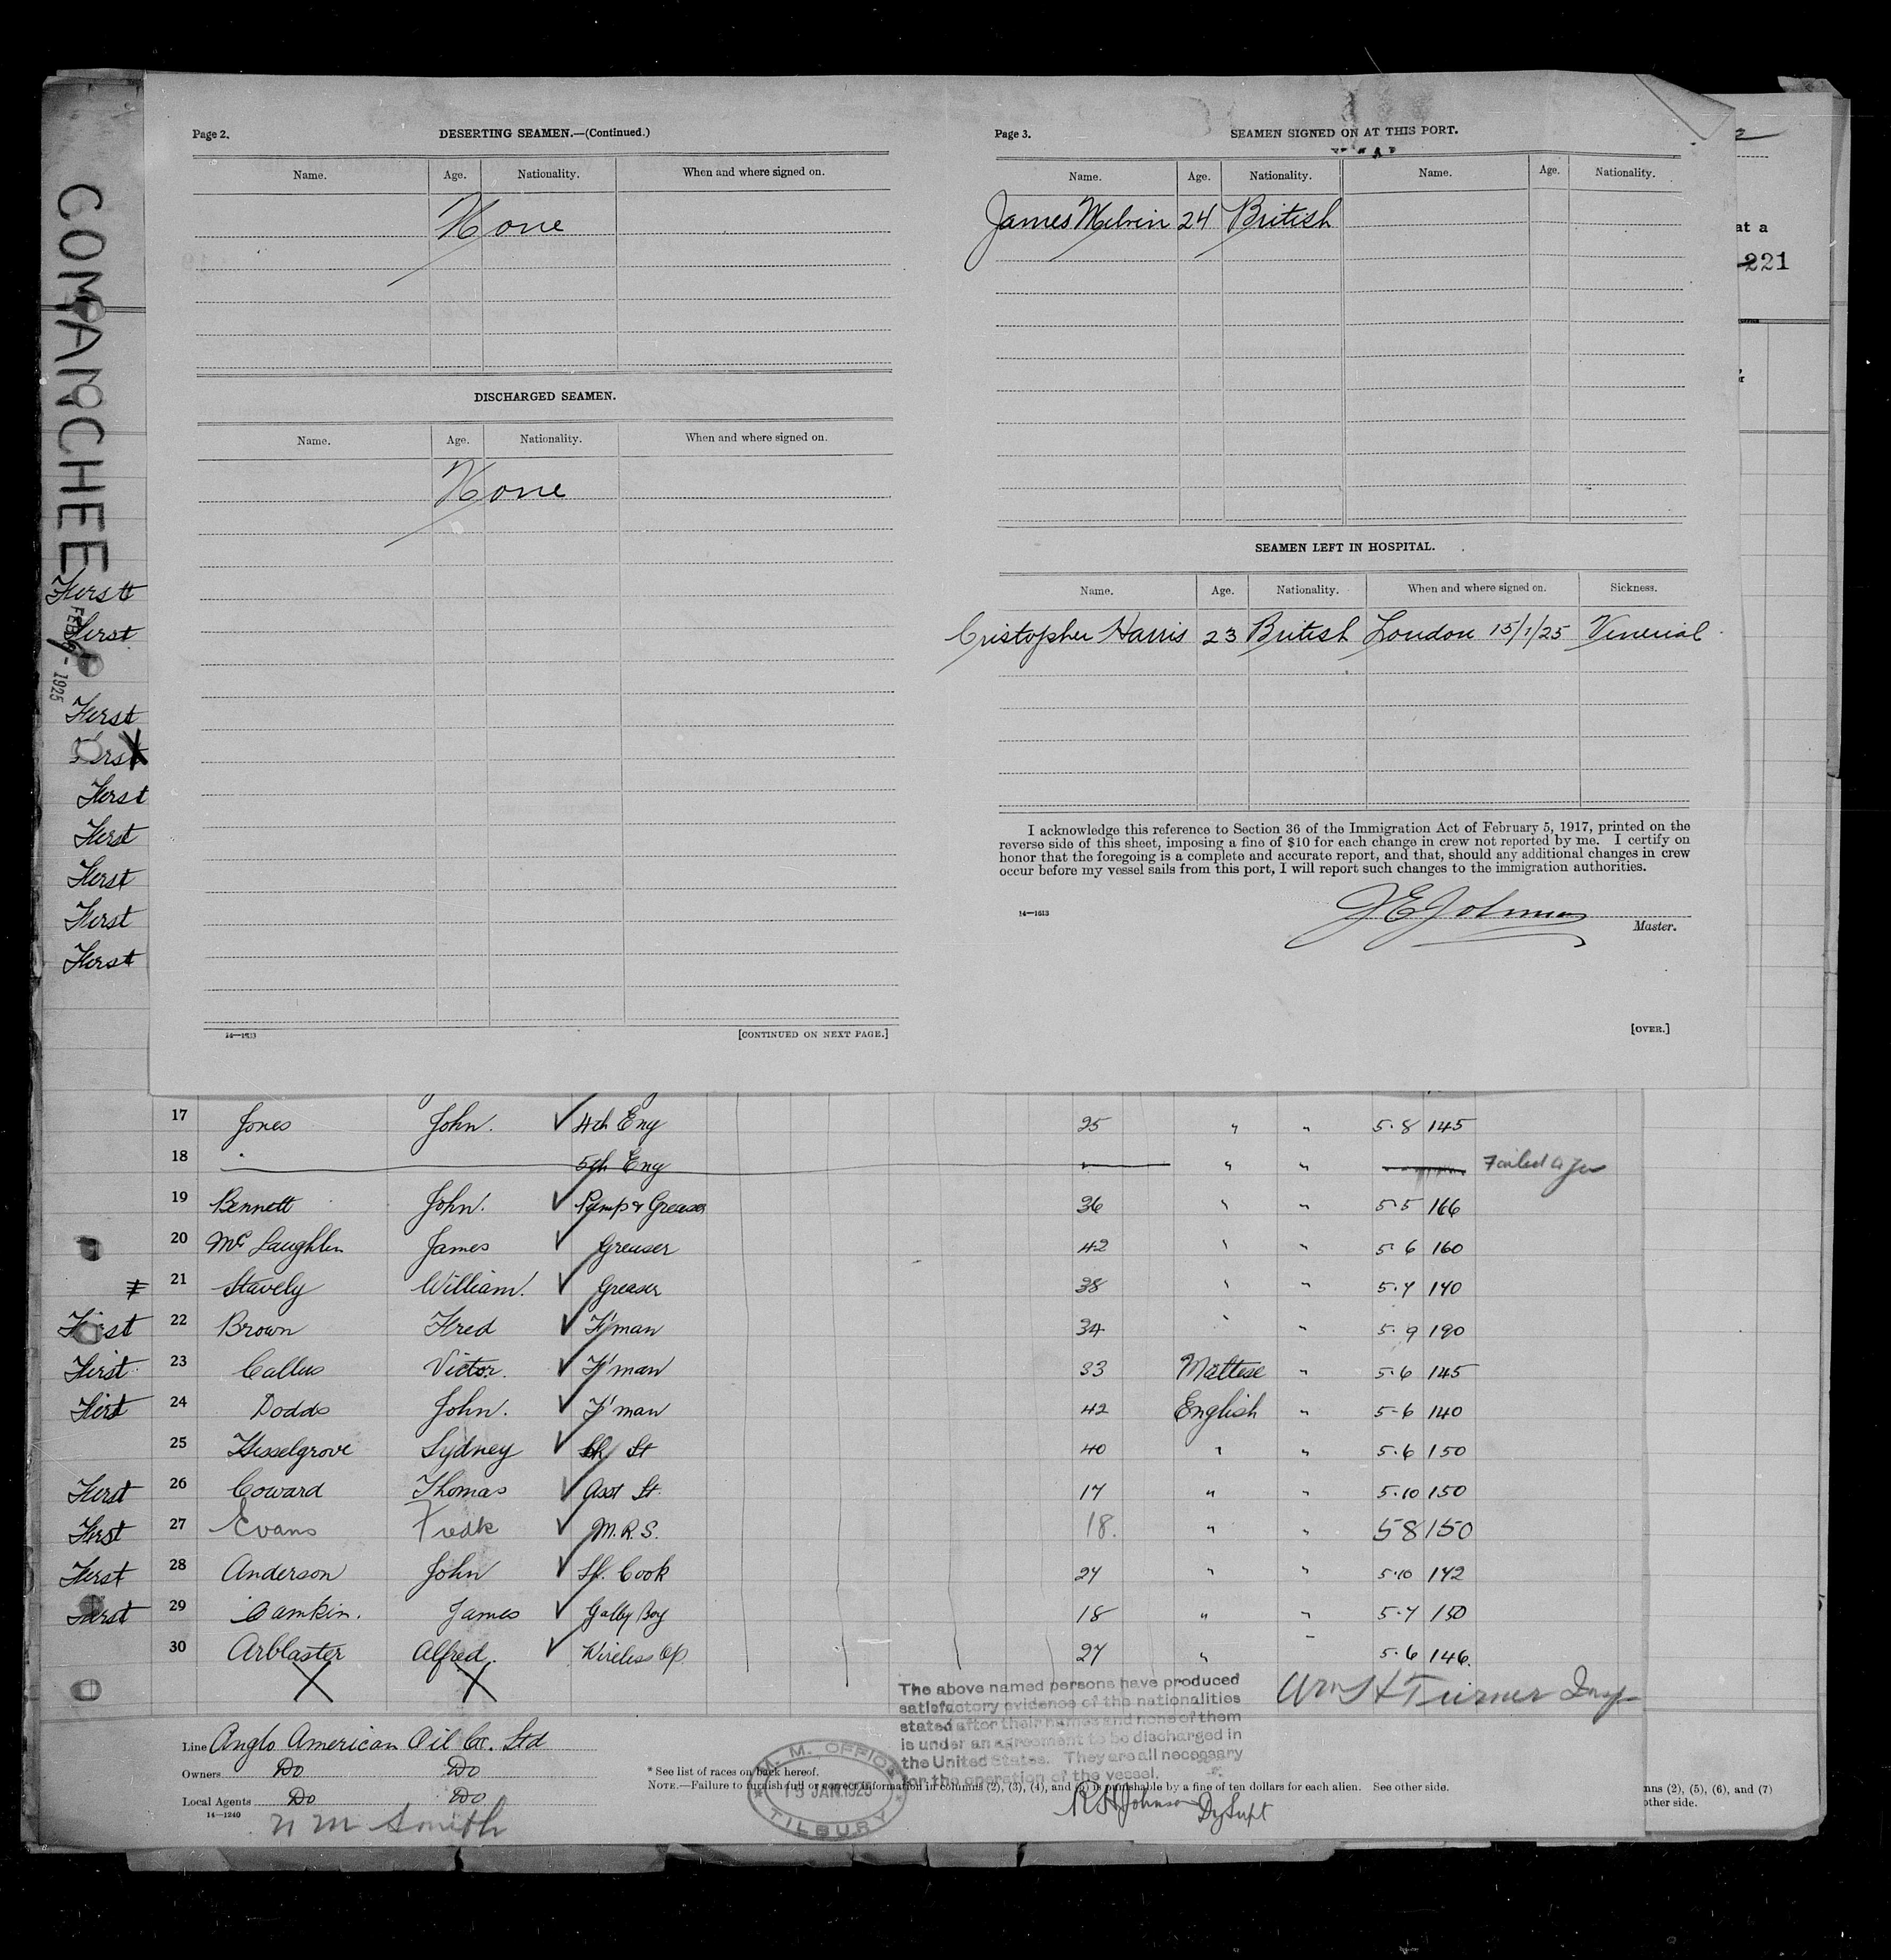 COMANCHEE
FEB - 1925
Page 2.
DESERTING SEAMEN.—(Continued.)
Name. Age. Nationality. When and where signed on.
None
DISCHARGED SEAMEN.
Name. Age. Nationality. When and where signed on.
None
14—1613
[CONTINUED ON NEXT PAGE.]
Page 3.
SEAMEN SIGNED ON AT THIS PORT.
Name. Age. Nationality. Name. Age. Nationality.
James Melvin 24 British
SEAMEN LEFT IN HOSPITAL.
Name. Age. Nationality. When and where signed on. Sickness.
Cristopher Harris 23 British London 15/1/25 Venerial
I acknowledge this reference to Section 36 of the Immigration Act of February 5, 1917, printed on the
reverse side of this sheet, imposing a fine of $10 for each change in crew not reported by me. I certify on
honor that the foregoing is a complete and accurate report, and that, should any additional changes in crew
occur before my vessel sails from this port, I will report such changes to the immigration authorities.
14—1613
J E Johnson
Master.
[OVER.]
at a
221
First
First
First
First
First
First
First
First
First
17 Jones John. 4th Eng 25 " " 5.8 145
18 5th Eng " " Failed to Join
19 Bennett John. Pump & Greaser 36 " " 5.5 166
20 McLaughlin James Greaser 42 " " 5.6 160
21 Stavely William. Greaser 38 " " 5.7 140
First 22 Brown Fred F'man 34 " " 5.9 190
First 23 Callus Victor. F'man 33 Maltese " 5.6 145
First 24 Dodds John. F'man 42 English " 5-6 140
25 Hesselgrove Sydney Ch St 40 " " 5.6 150
First 26 Coward Thomas Asst St. 17 " " 5.10 150
First 27 Evans Fredk M.R.S. 18. " " 58 150
First 28 Anderson John Sh. Cook 24 " " 5.10 142
First 29 Lamkin. James Galley Boy 18 " " 5.7 150
30 Arblaster Alfred. Wireless Op. 27 " 5.6 146.
The above named persons have produced
satisfactory evidence of the nationalities
stated after their names and none of them
is under an agreement to be discharged in
the United States. They are all necessary
for the operation of the vessel.
Wm H Turner Insp
Line Anglo American Oil Co. Ltd
Owners Do Do
Local Agents Do Do
14—1240
N M Smith
M. M. OFFICE
15 JAN. 1925
TILBURY
* See list of races on back hereof.
NOTE.—Failure to furnish full or correct information in columns (2), (3), (4), and (5) is punishable by a fine of ten dollars for each alien. See other side.
R H Johnson Dy Supt
mns (2), (5), (6), and (7)
other side.